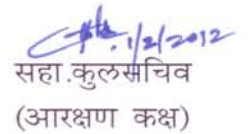 1/2/2012
सहा.कुलसचिव
(आरक्षण कक्ष)